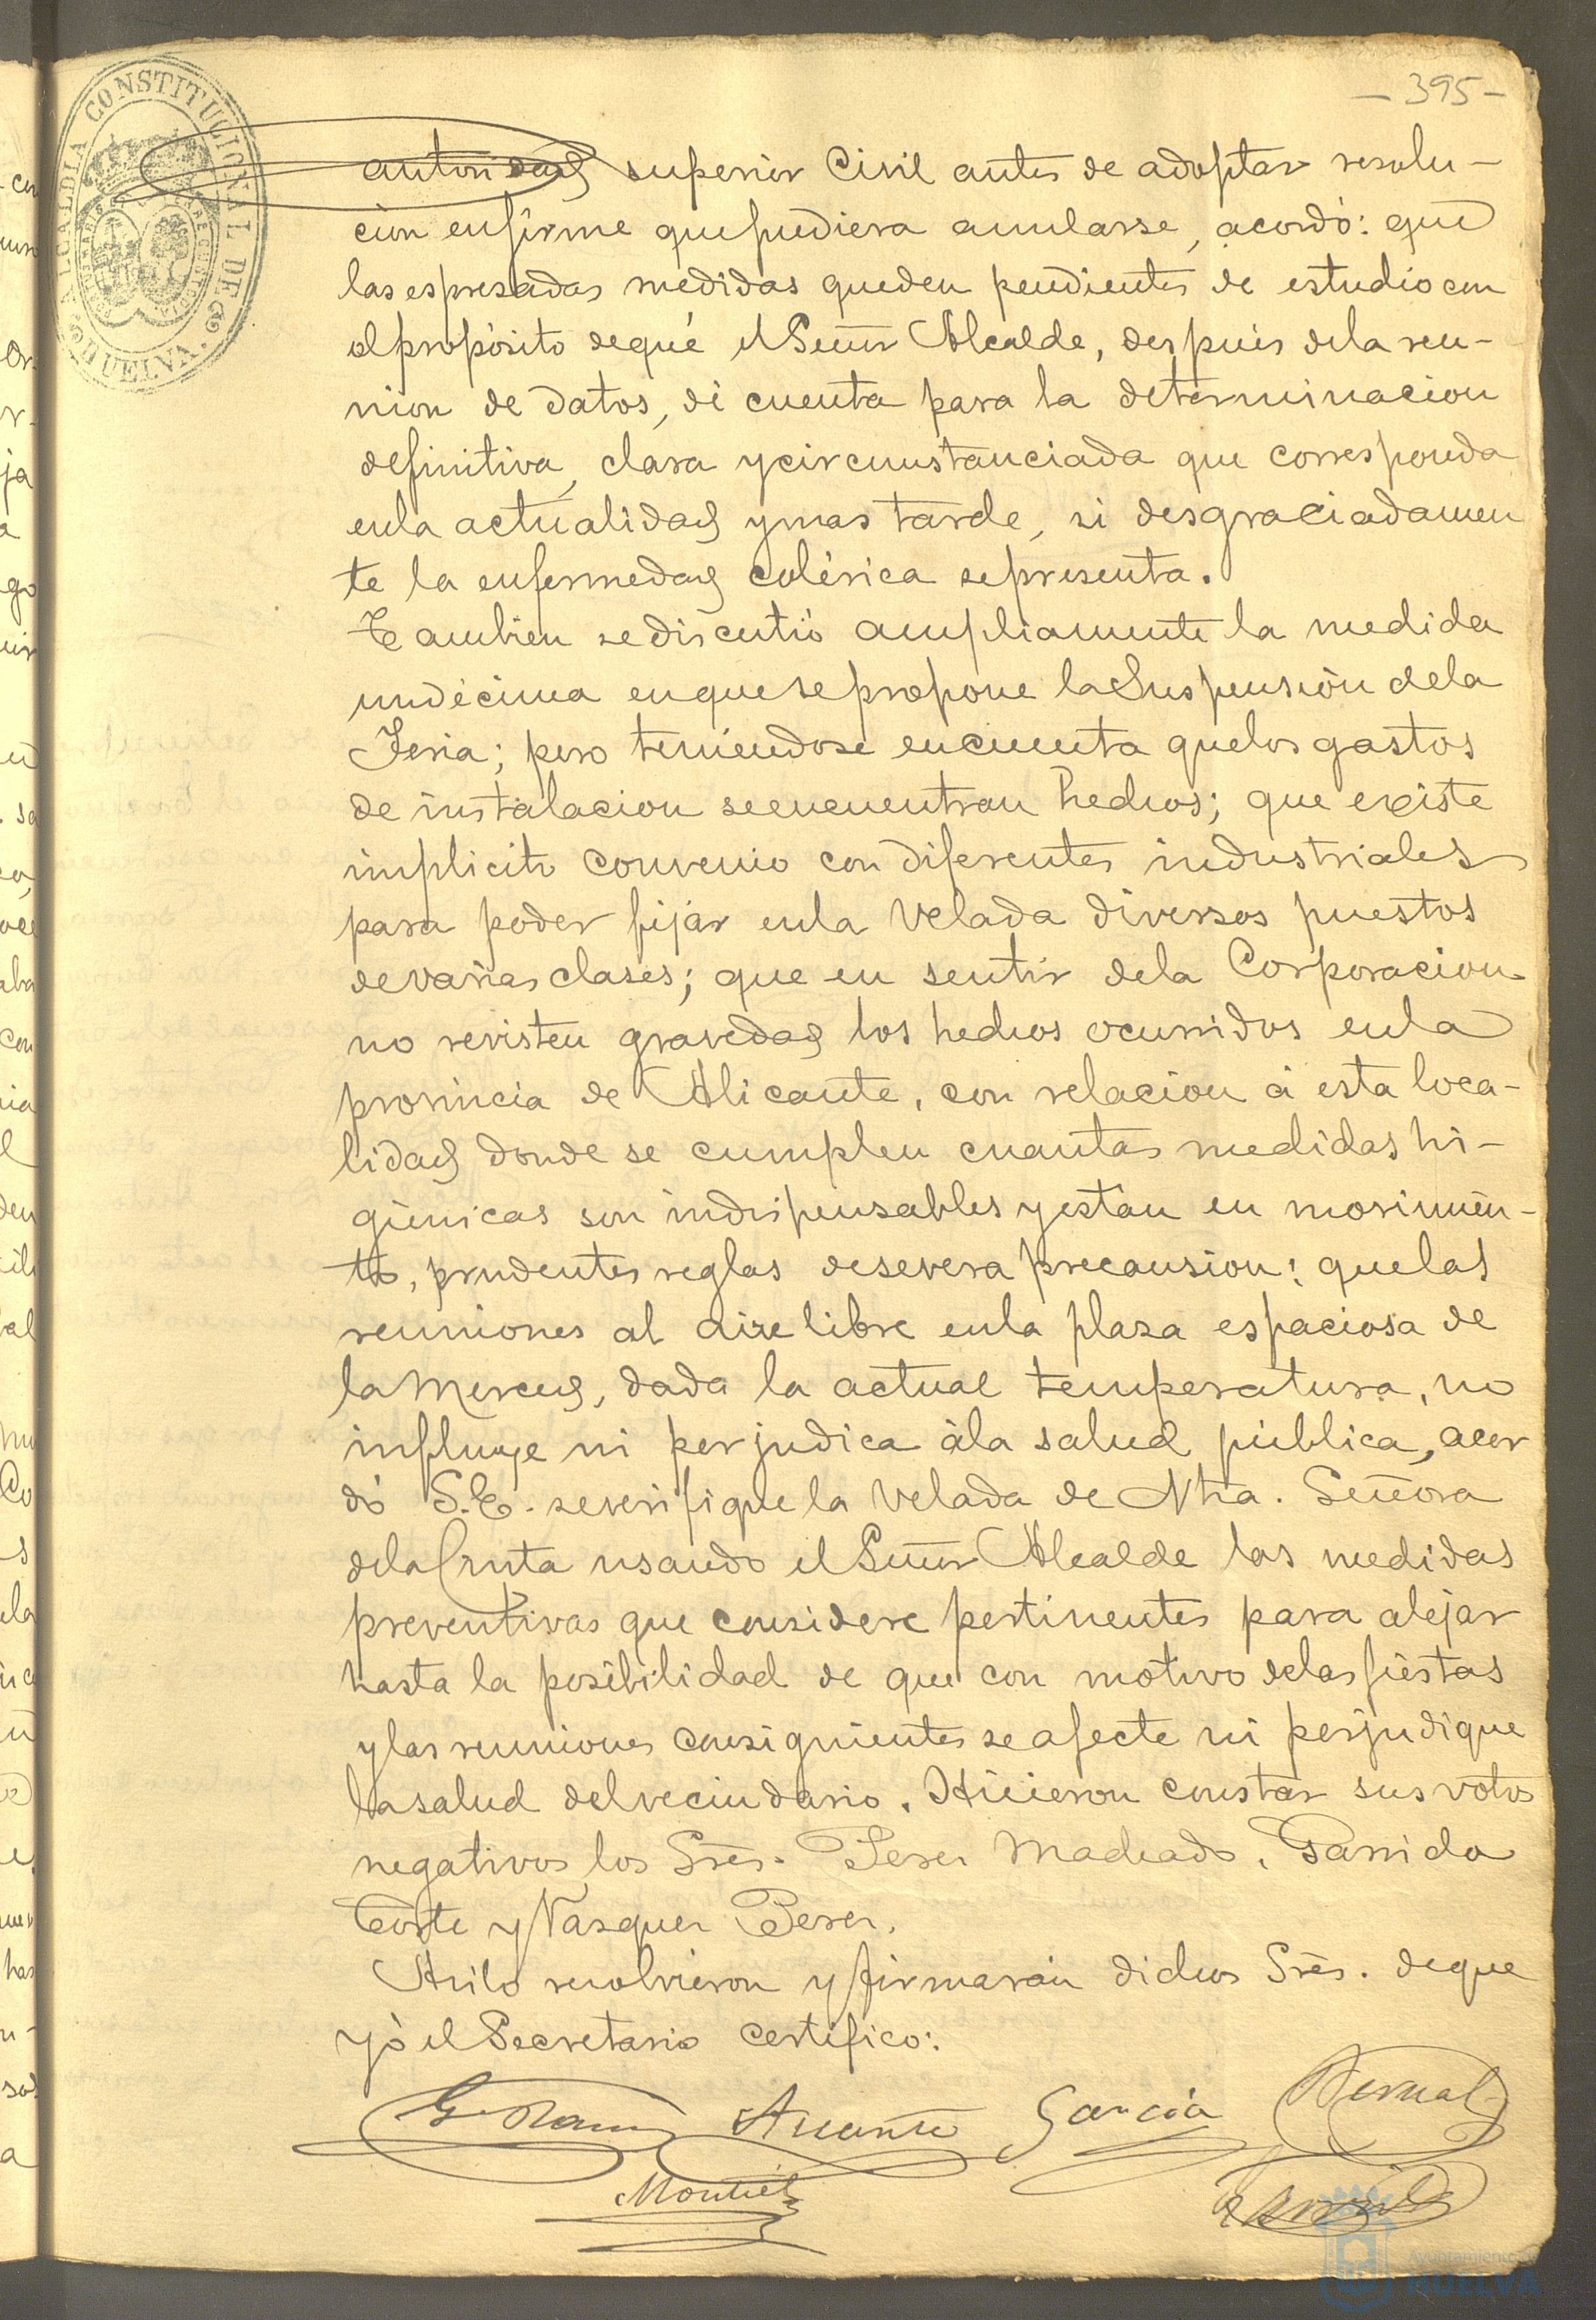 - 395 -
ALCALDIA CONSTITUCIONAL DE HUELVA
autoridad superior Civil antes de adoptar resolu-
cion enfirme quepudiera anularse, acordó: que
las espresadas medidas queden pendientes de estudio con
el propósito deque el Señor Alcalde, despues dela reu-
nion de datos, dé cuenta para la determinacion
definitiva, clara ycircunstanciada que corresponda
enla actualidad ymas tarde, si desgraciadamen
te la enfermedad colérica sepresenta.
Tambien sediscutió ampliamente la medida
undécima enquese propone la Suspension dela
Feria; pero teniendose encuenta quelos gastos
de instalacion seencuentran hechos; que existe
implicito convenio con diferentes industriales
para poder fijar enla Velada diversos puestos
devarias clases; que en sentir dela Corporacion
no revisten gravedad los hechos ocurridos enla
provincia de Alicante, con relacion á esta loca-
lidad donde se cumplen cuantas medidas hi-
giénicas son indispensables yestán en movimien-
to, prudentes reglas desevera precausion; quelas
reuniones al aire libre enla plaza espaciosa de
la Merced, dada la actual temperatura, no
influye ni perjudica ála salud pública, acor
dó S.E. severifique la Velada de Ntra. Señora
dela Cinta usando el Señor Alcalde las medidas
preventivas que considere pertinentes para alejar
hasta la posibilidad de que con motivo delas fiestas
ylas reuniones consiguientes se afecte ni perjudique
la salud delvecindario. Hicieron constar sus votos
negativos los Srés. Perez Machado, Garrido
Corte y Vazquez Perez.
Asilo resolvieron y firmarán dichos Srés. deque
yó el Secretario certifico:
Garcia Bernal
Montiel
Ayuntamiento de
HUELVA